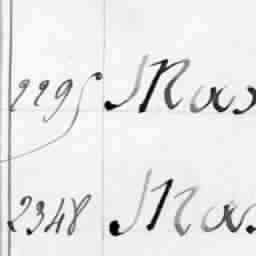 2295 Mas
2348 Mas